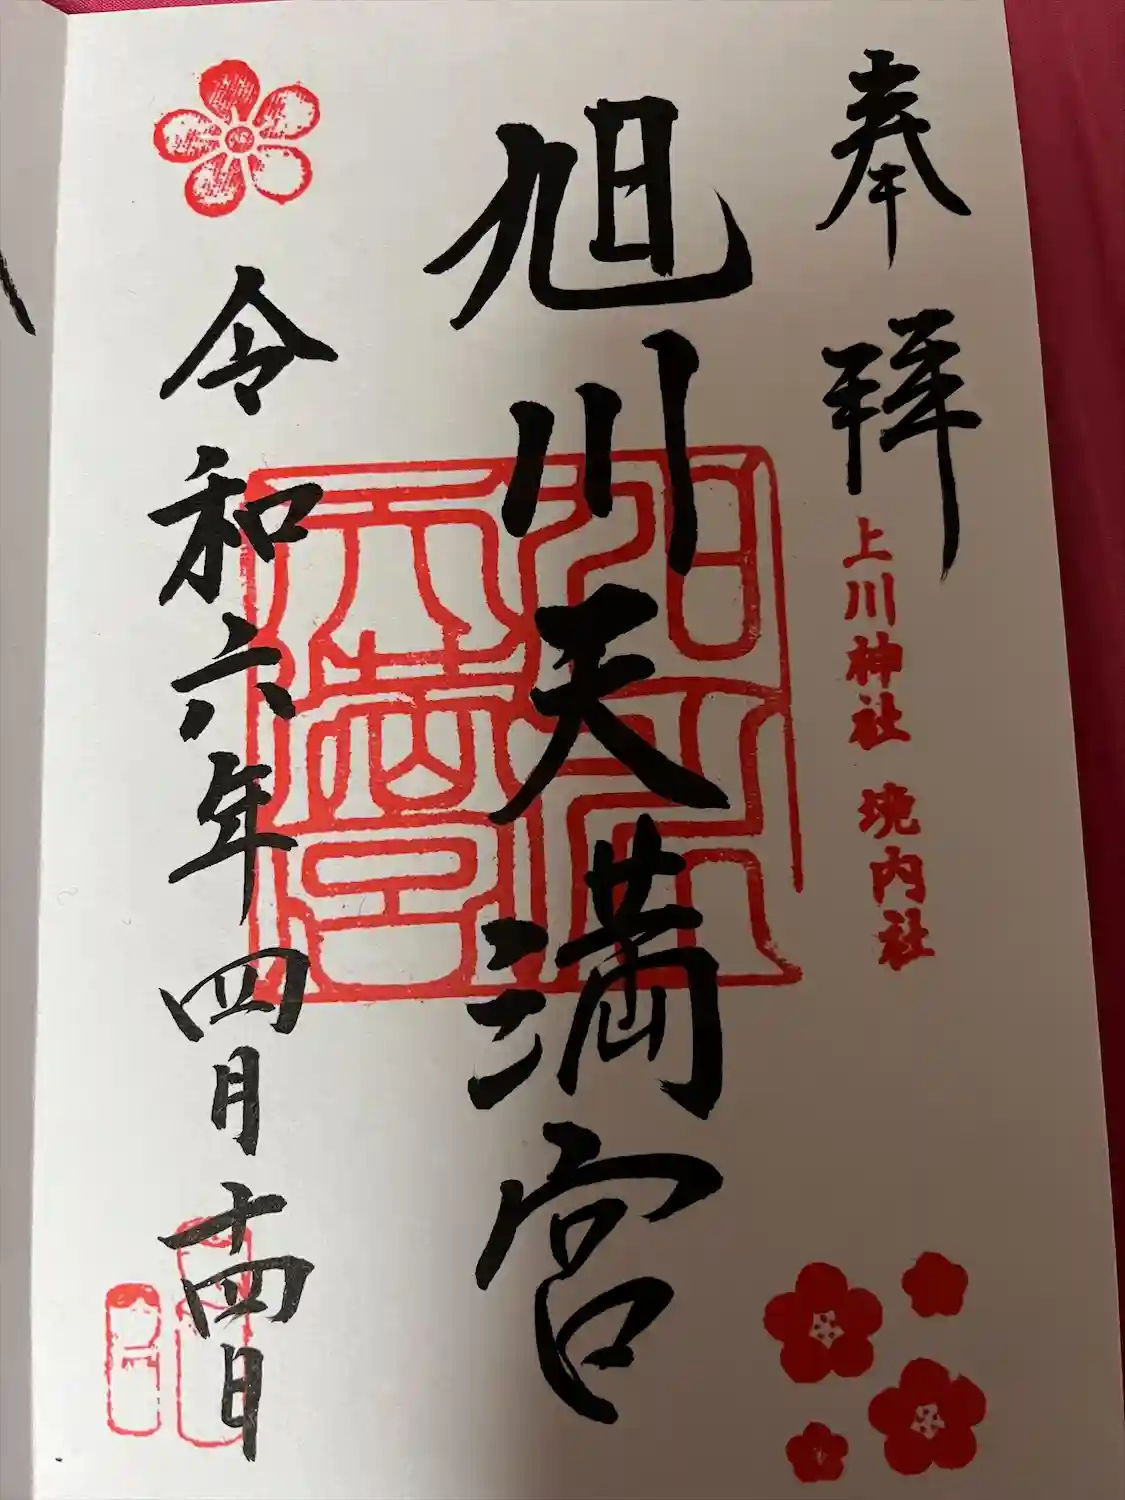 奉拝
上川神社 境内社
旭川天満宮
旭川天満宮
令和六年四月十四日